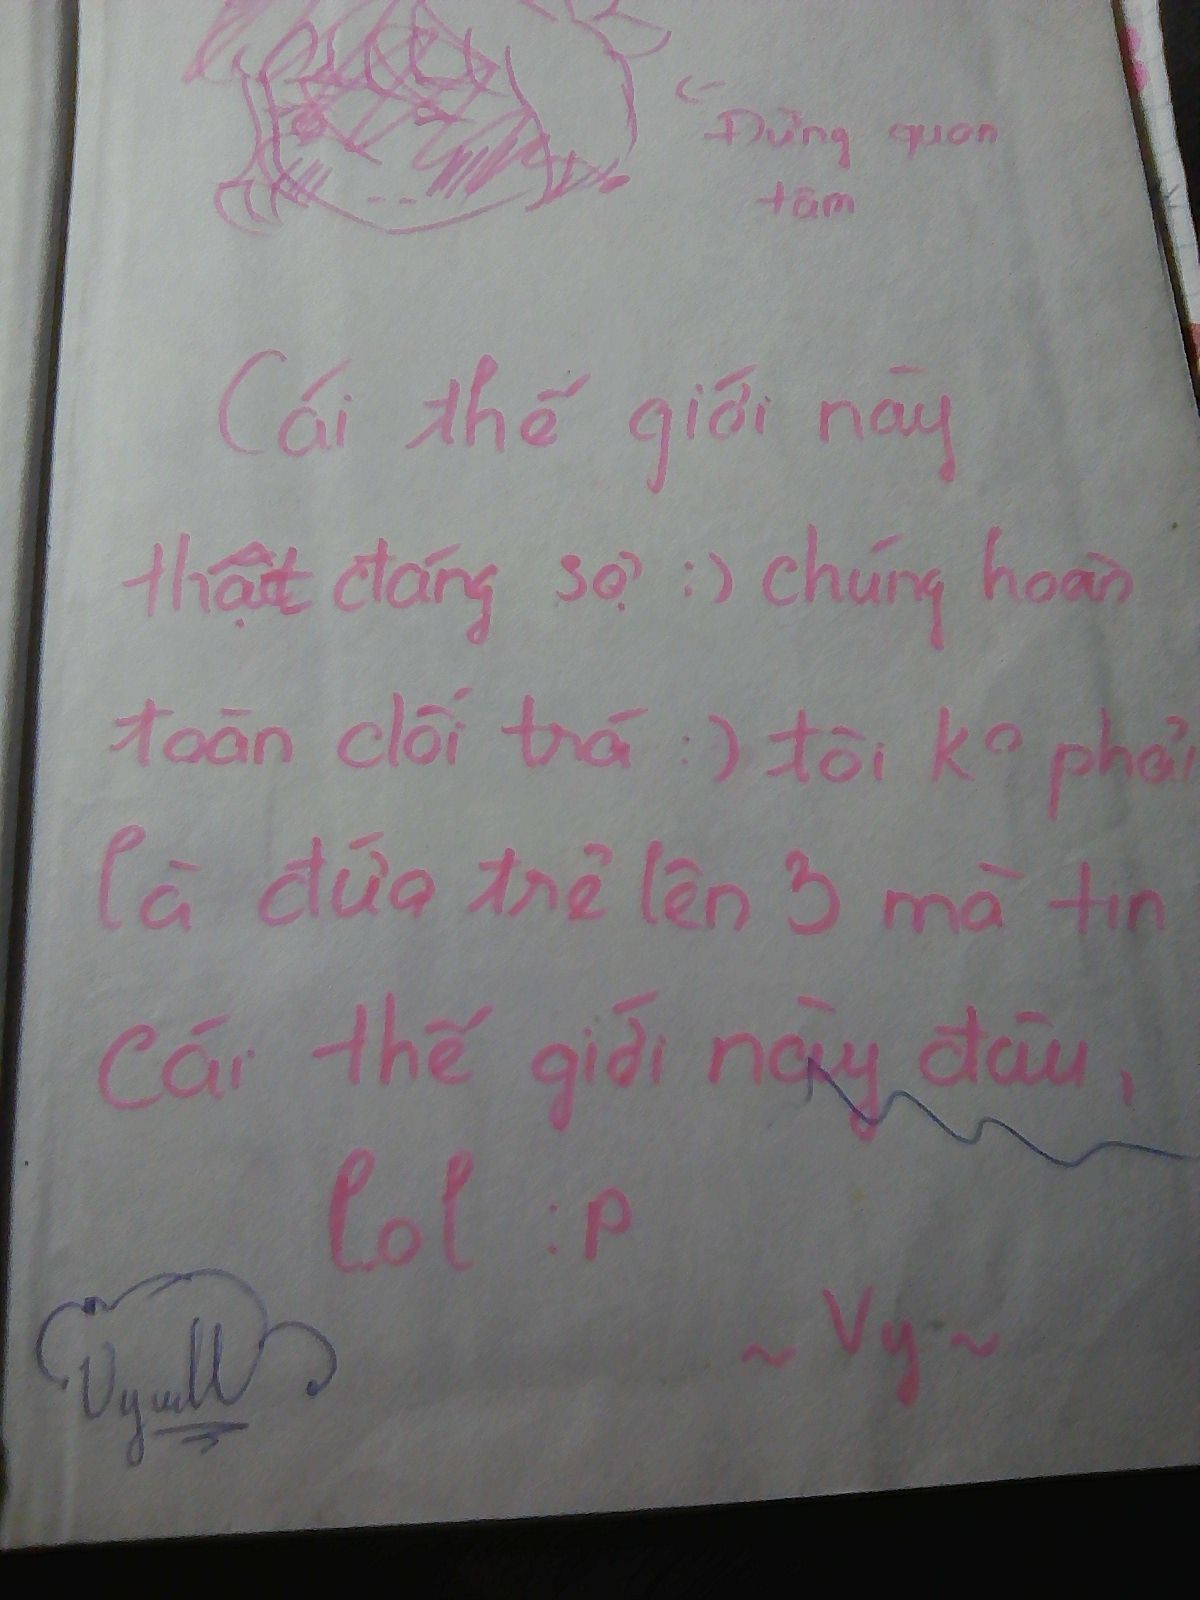 Đừng quan
tâm
Cái thế giới này
thật đáng sợ :) chúng hoàn
toàn dối trá :) tôi kº phải
là đứa trẻ lên 3 mà tin
cái thế giới này đâu,
lol :P
~ Vy ~